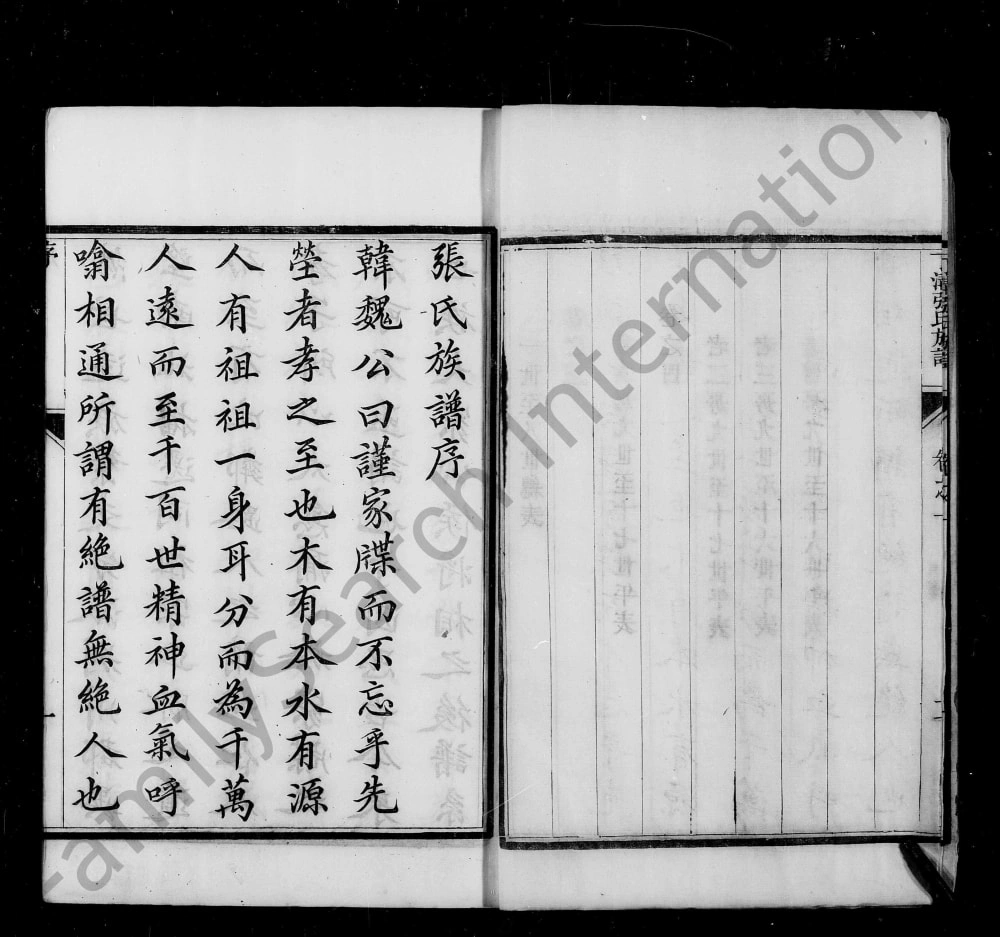 張氏族譜序
韓魏公曰謹家牒而不忘乎先
塋者孝之至也木有本水有源
人有祖祖一身耳分而為千萬
人遠而至千百世精神血氣呼
噏相通所謂有絶譜無絶人也
序
一
張氏族譜
FamilySearch International